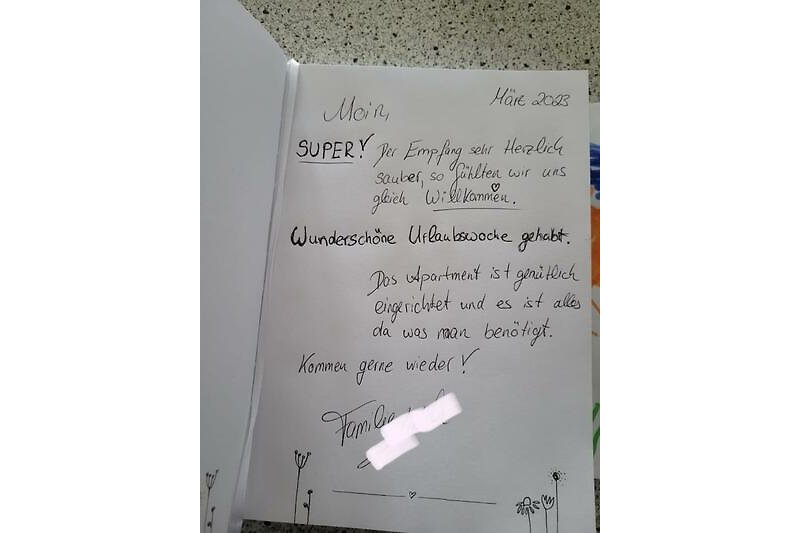 März 2023
Moin,
SUPER! Der Empfang sehr Herzlich
sauber, so fühlten wir uns
gleich Willkommen.
Wunderschöne Urlaubswoche gehabt.
Das Apartment ist gemütlich
eingerichtet und es ist alles
da was man benötigt.
Kommen gerne wieder!
Familie